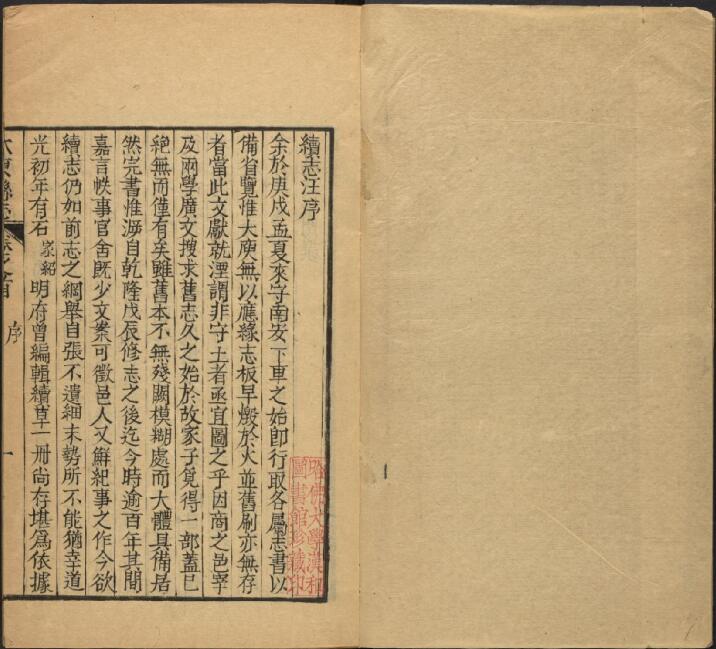 續志汪序
余於庚戌孟夏來守南安下車之始卽行取各屬志書以
備省覽惟大庾無以應緣志板早燬於火並舊刷亦無存
者當此文獻就湮謂非守土者亟宜圖之乎因商之邑宰
及兩學廣文搜求舊志久之始於故家子覓得一部蓋已
絶無而僅有矣雖舊本不無殘闕模糊處而大體具備居
然完書惟溯自乾隆戊辰修志之後迄今時逾百年其間
嘉言軼事官舍既少文案可徵邑人又鮮紀事之作今欲
續志仍如前志之綱舉自張不遺細末勢所不能猶幸道
光初年有石家紹明府曾編輯續草一冊尚存堪爲依據
大庾縣志
序
一
哈佛大學漢和
圖書館珍藏印